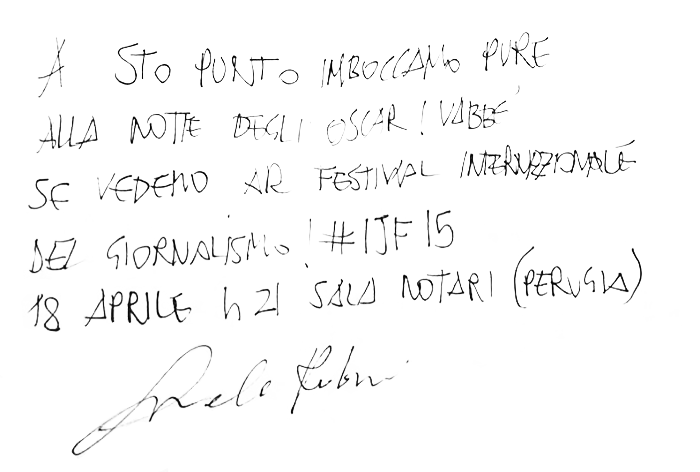 A STO PUNTO IMBOCCAMO PURE
ALLA NOTTE DEGLI OSCAR! VABBE'
SE VEDEMO AR FESTIVAL INTERNAZIONALE
DEL GIORNALISMO! #IJF15
18 APRILE h 21 SALA NOTARI (PERUGIA)